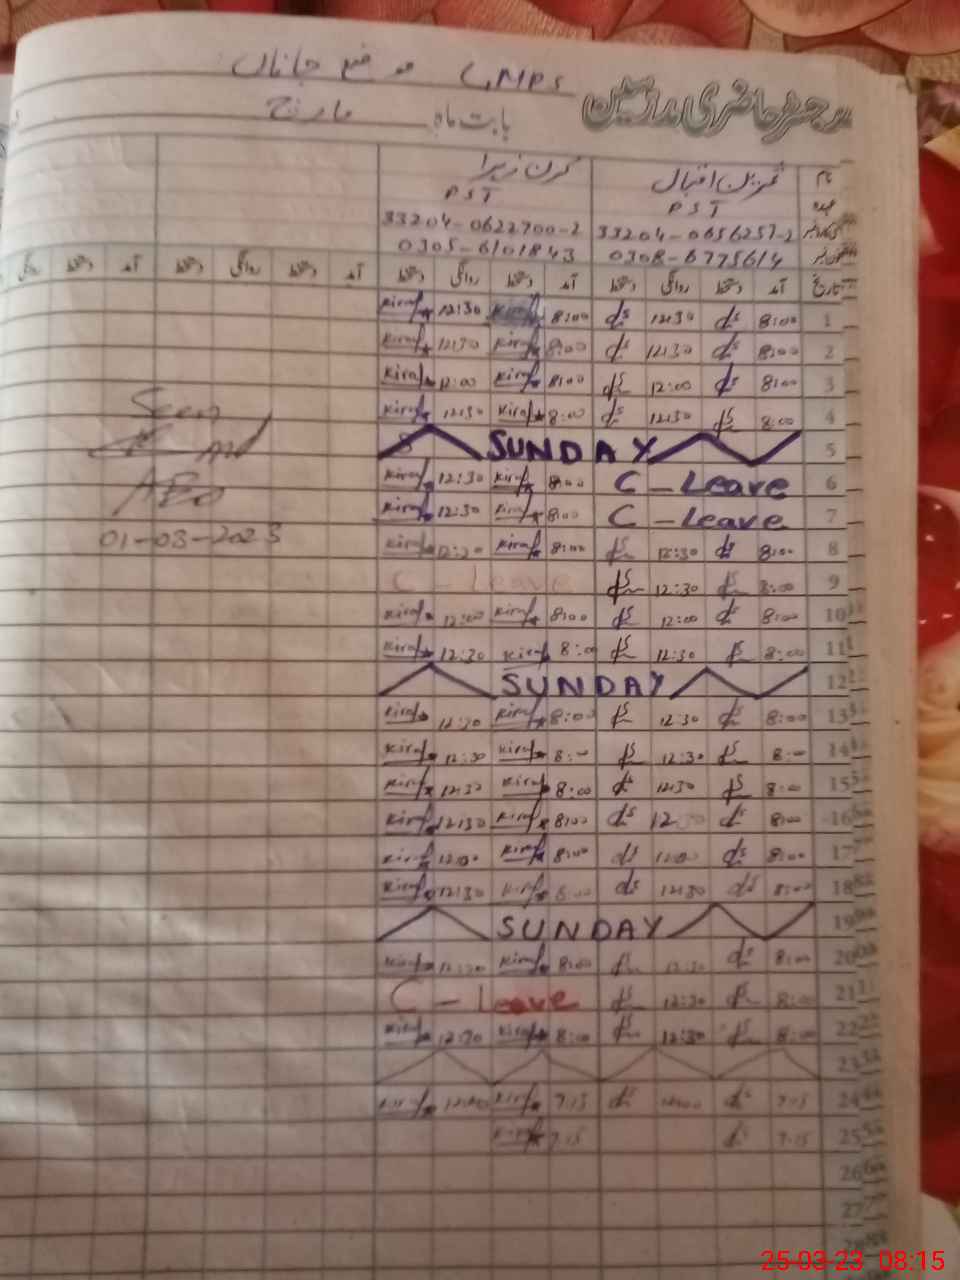 GMPS موضع جاناں
رجسٹر حاضری مدرسین
بابت ماہ مارچ
نام ثمرین اقبال کرن زہرا
عہدہ PST PST
33204-0656251-2 33204-0622700-2
0308-6775614 0305-6101843
تاریخ آمد دستخط روانگی دستخط آمد دستخط روانگی دستخط آمد دستخط روانگی دستخط آمد دستخط روانگی
1 8:00 12:30 8:00 Kiran 12:30 Kiran
2 8:00 12:30 Kiran 8:00 12:30 Kiran
3 8:00 12:00 Kiran 8:00 12:00 Kiran
4 8:00 12:30 Kiran 8:00 12:30 Kiran
5 SUNDAY
6 C - Leave Kiran 8:00 12:30 Kiran
7 C - Leave Kiran 8:00 12:30 Kiran
8 8:00 12:30 Kiran 8:00 12:30 Kiran
9 8:00 12:30 C - Leave
10 8:00 12:00 Kiran 8:00 12:00 Kiran
11 8:00 12:30 Kiran 8:00 12:30 Kiran
12 SUNDAY
13 8:00 12:30 Kiran 8:00 12:30 Kiran
14 8:00 12:30 Kiran 8:00 12:30 Kiran
15 8:00 12:30 Kiran 8:00 12:30 Kiran
16 8:00 12:30 Kiran 8:00 12:30 Kiran
17 8:00 12:00 Kiran 8:00 12:00 Kiran
18 8:00 12:30 Kiran 8:00 12:30 Kiran
19 SUNDAY
20 8:00 12:30 Kiran 8:00 12:30 Kiran
21 8:00 12:30 C - Leave
22 8:00 12:30 Kiran 8:00 12:30 Kiran
23
24 7:15 12:00 Kiran 7:15 12:00 Kiran
25 7:15 Kiran 7:15
26
27
28
Seen
AEO
01-03-2023
25-03-23 08:15